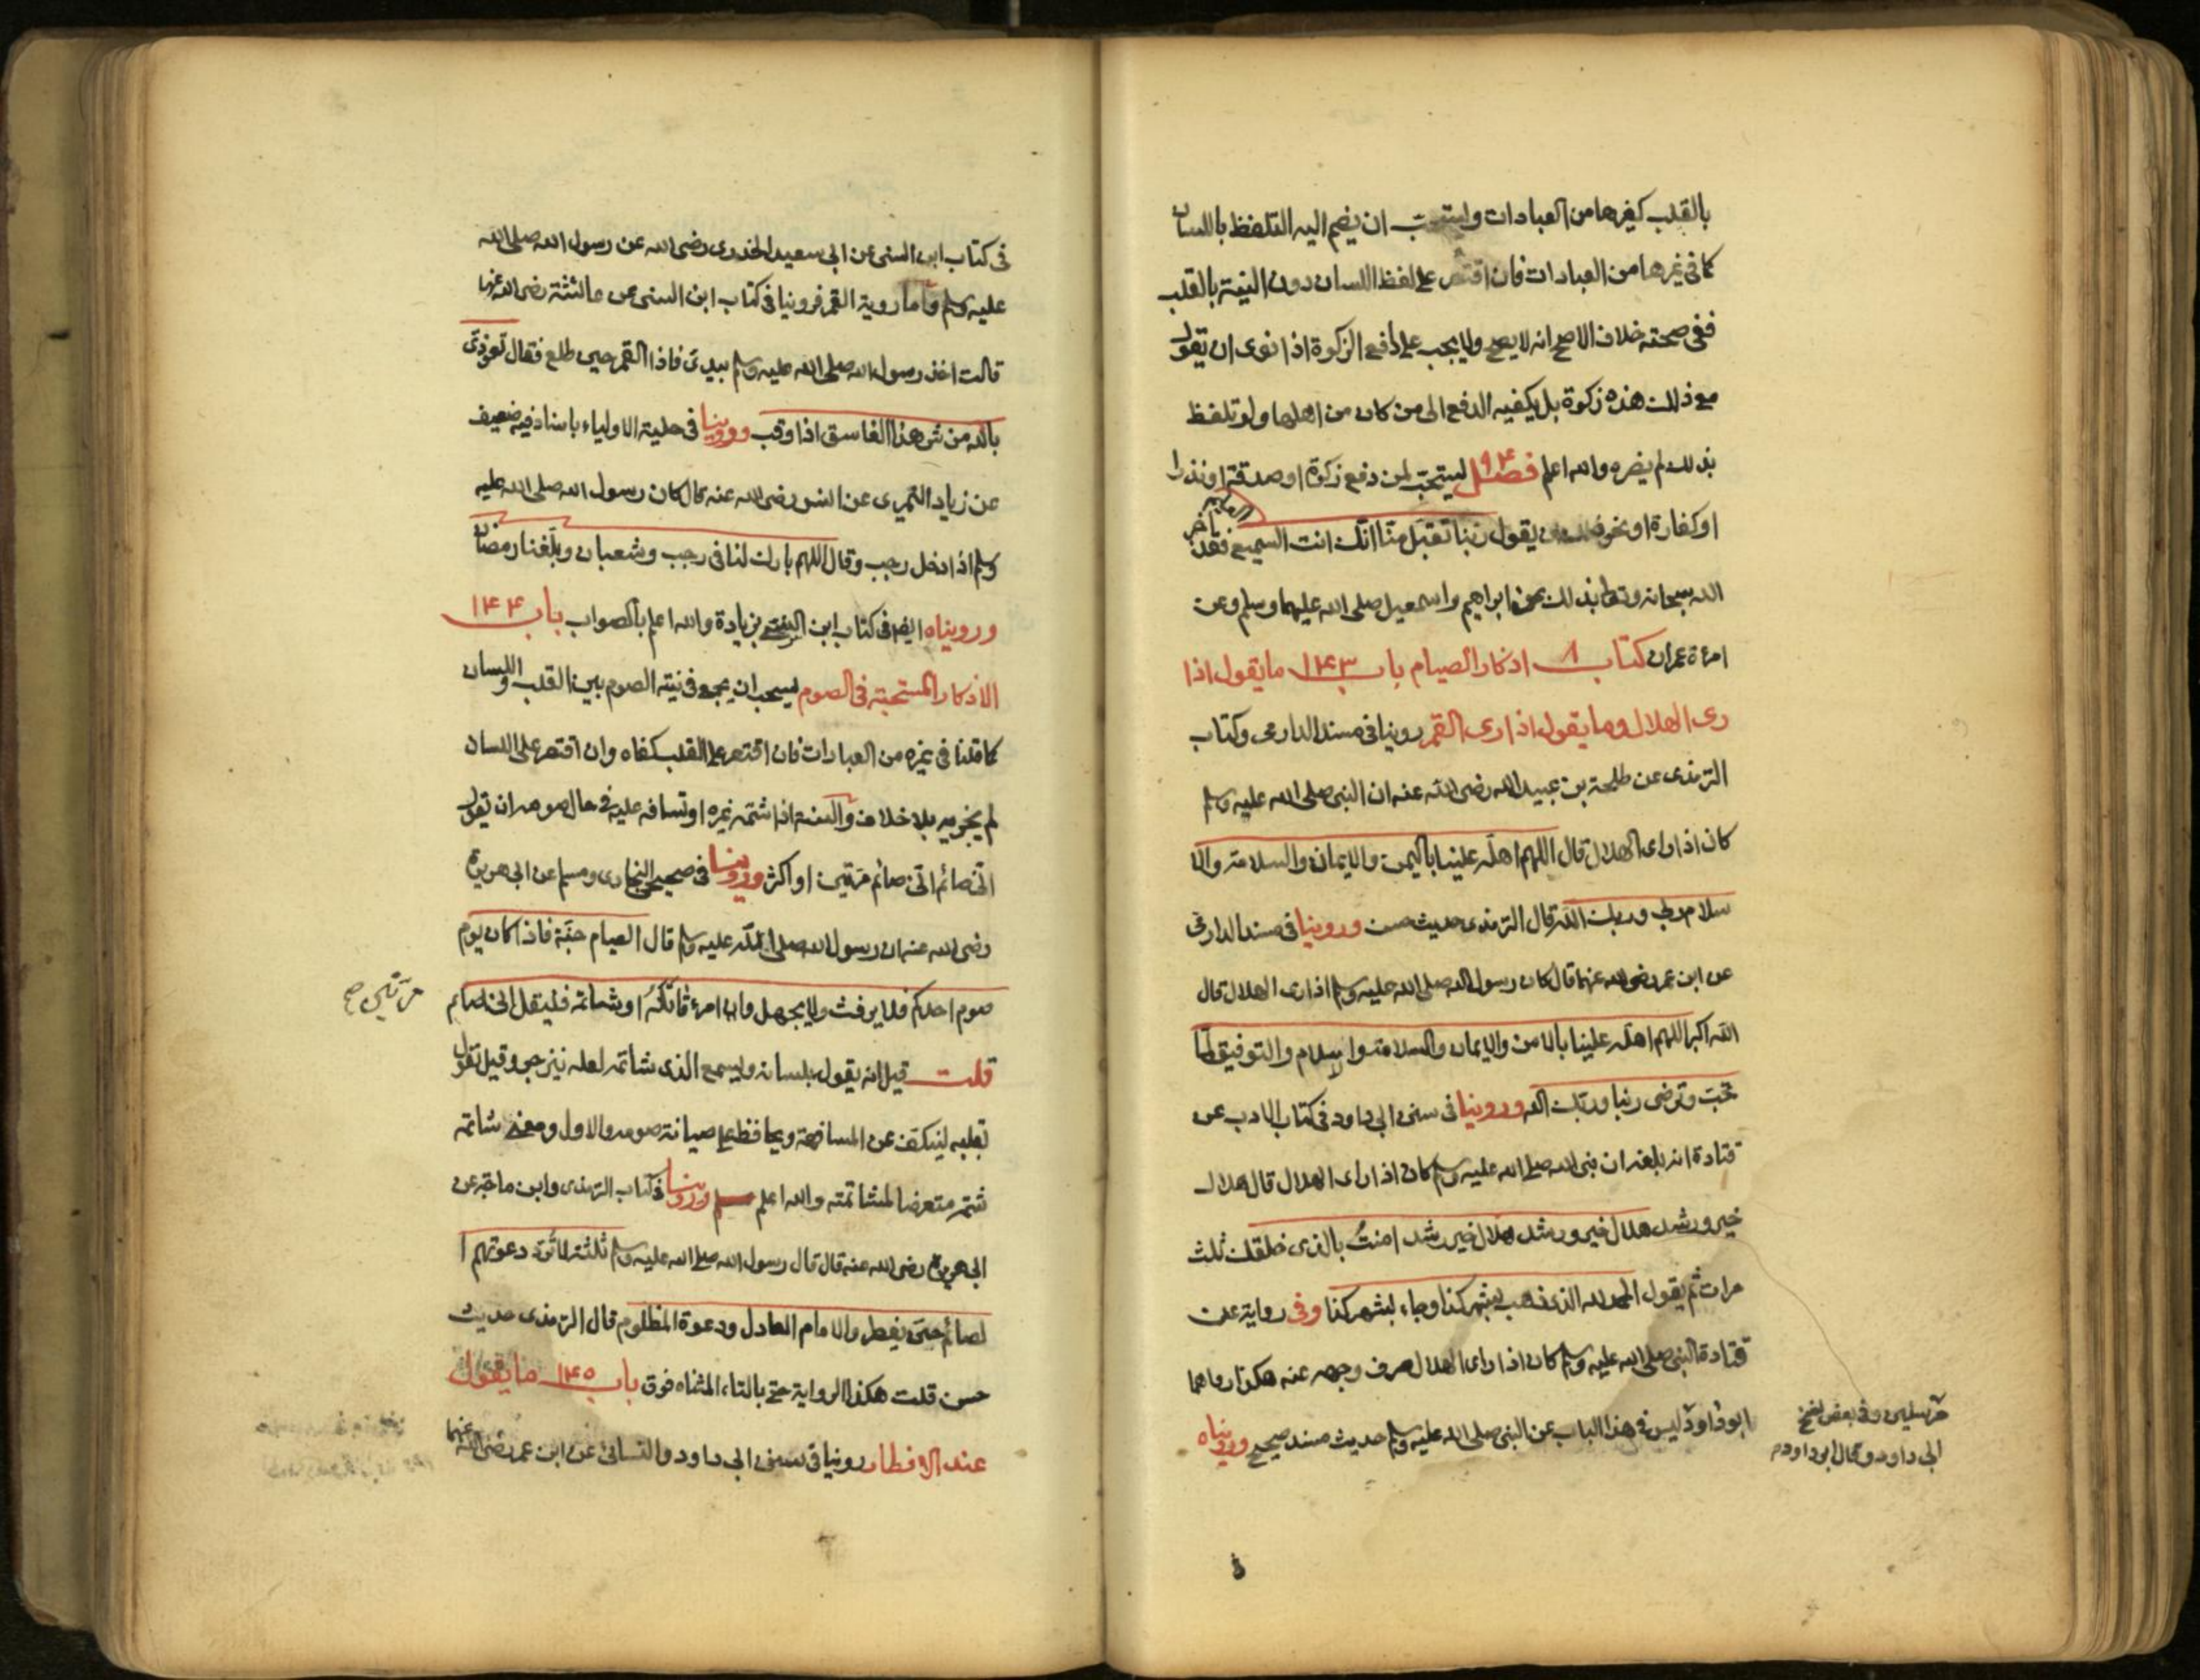 بالقلب كغيرها من العبادات وليستحب ان يضم اليه التلفظ باللسان
كما فى غيرها من العبادات فان اقتصر على لفظ اللسان دون النية بالقلب
ففى صحته خلاف الاصح انه لا يصح ولا يجب على دافع الزكوة اذا نوى ان يقول
مع ذلك هذه زكوة بل يكفيه الدفع الى من كان من اهلها ولو تلفظ
بذلك لم يضره والله اعلم فصل ٩٤ ليستحب لمن دفع زكوة او صدقة او نذرا
او كفارة او نحو ذلك ان يقول ربنا تقبل منا انك انت السميع العليم فقد اخبر
الله سبحانه وتعالى بذلك عن ابراهيم واسمعيل صلى الله عليهما وسلم وعن
امرءة عمران كتاب ٨ اذكار الصيام باب ١٤٣ ما يقول اذا
رى الهلال وما يقول اذا رى القمر روينا فى مسند الدارمى وكتاب
الترمذى عن طلحة بن عبيد الله رضى الله عنه ان النبى صلى الله عليه وسلم
كان اذا راى الهلال قال اللهم اهله علينا باليمن والايمان والسلامة والا
سلام ربى وربك الله قال الترمذى حديث حسن وروينا فى مسند الدارمى
عن ابن عمر رضى الله عنهما قال كان رسول الله صلى الله عليه وسلم اذا رى الهلال قال
الله اكبر اللهم اهله علينا بالامن والايمان والسلامة والاسلام والتوفيق لما
تحب وترضى ربنا وربك الله وروينا فى سنن ابى داود فى كتاب الادب عن
قتادة انه بلغه ان نبى الله صلى الله عليه وسلم كان اذا راى الهلال قال هلال
خير ورشد هلال خير ورشد هلال خير رشد امنت بالذى خلقك ثلث
مرات ثم يقول الحمد لله الذى ذهب بشهر كذا وجاء بشهر كذا وفى رواية عن
قتادة النبى صلى الله عليه وسلم كان اذا راى الهلال صرف وجهه عنه هكذا رواهما
ابو داود ليس فى هذا الباب عن النبى صلى الله عليه وسلم حديث مسند صحيح ورويناه
مرسلين وفى بعض نسخ
ابى داود وقال ابو داود
فى كتاب ابن السنى عن ابى سعيد الخدرى رضى الله عن رسول الله صلى الله
عليه وسلم واما روية القمر فروينا فى كتاب ابن السنى عن عائشة رضى الله عنها
قالت اخذ رسول الله صلى الله عليه وسلم بيدى فاذا القمر حين طلع فقال تعوذى
بالله من شر هذا الغاسق اذا وقب وروينا فى حلية الاولياء باسناد فيه ضعيف
عن زياد النميرى عن انس رضى الله عنه قال كان رسول الله صلى الله عليه
وسلم اذا دخل رجب وقال اللهم بارك لنا فى رجب وشعبان وبلغنا رمضان
وروينا‌ه ايضا فى كتاب ابن السنى بزيادة والله اعلم بالصواب باب ١٤٤
الاذكار المستحبة فى الصوم يستحب ان يجمع فى نية الصوم بين القلب واللسان
كما قلنا فى غيره من العبادات فان اقتصر على القلب كفاه وان اقتصر على اللسان
لم يجزيه بلا خلاف والسنة اذا شتمه غيره او تسافه عليه فى حال صومه ان يقول
انى صائم انى صائم مرتين او اكثر وروينا فى صحيح البخارى ومسلم عن ابى هريرة
رضى الله عنه ان رسول الله صلى الله عليه وسلم قال الصيام جنة فاذا كان يوم
صوم احدكم فلا يرفث ولا يجهل وان امرء قاتله او شاتمه فليقل انى صائم
مرتين صح
قلت قيل انه يقول بلسانه وليسمع الذى شاتمه لعله ينزجر وقيل يقول
بقلبه لينكف عن المسافهة ويحافظ على صيانة صومه والاول ومعنى شاتمه
شتمه متعرضا لمشاتمته والله اعلم وروينا فى كتاب الترمذى وابن ماجة عن
ابى هريرة رضى الله عنه قال قال رسول الله صلى الله عليه وسلم ثلثة لا ترد دعوتهم ا
لصائم حتى يفطر والامام العادل ودعوة المظلوم قال الترمذى حديث
حسن قلت هكذا الرواية حتى بالتاء المثناه فوق باب ١٤٥ ما يقول
عند الافطار روينا فى سنن ابى داود والنسائى عن ابن عمر رضى الله عنهما